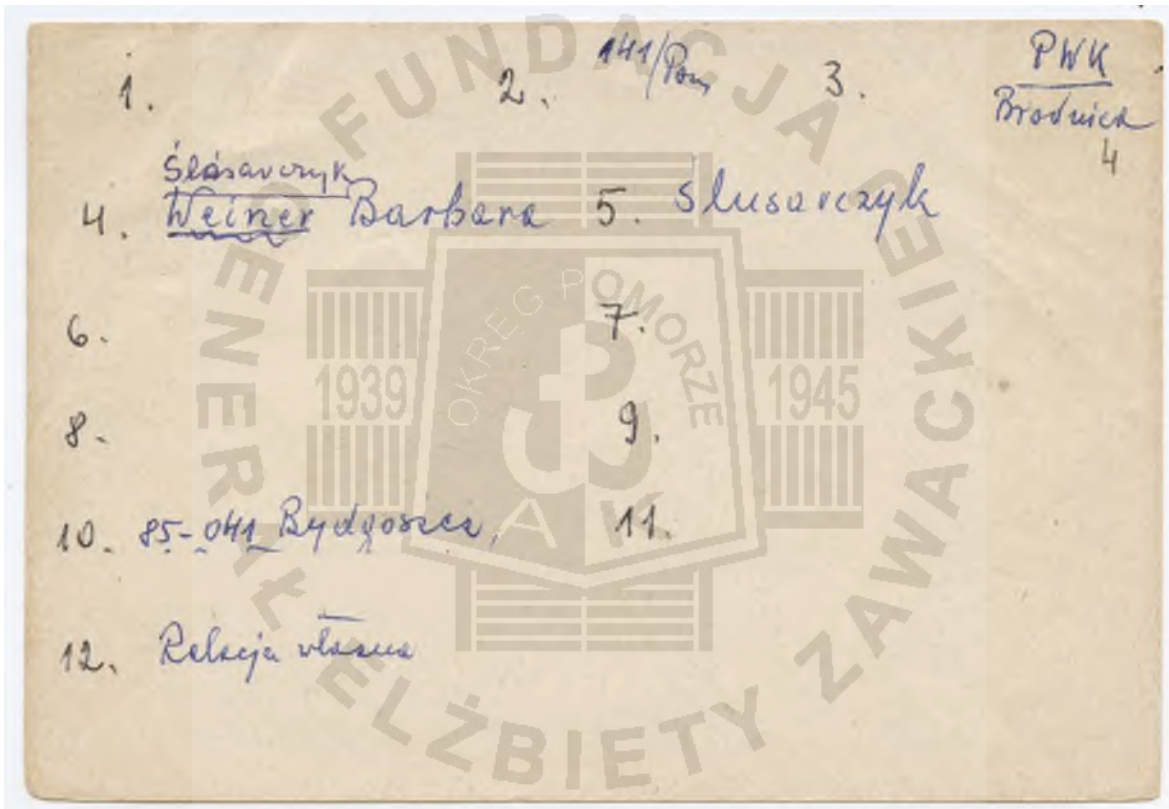 1. 2. 141/Pom 3. PWK
Brodnica
4
Ślusarczyk
4. Weiner Barbara 5. Slusarczyk
6. 7.
8. 9.
10. 85-041 Bydgoszcz, 11.
12. Relacja własna
FUNDACJA GENERAŁ ELŻBIETY ZAWACKIEJ
OKRĘG POMORZE
1939 1945
AK